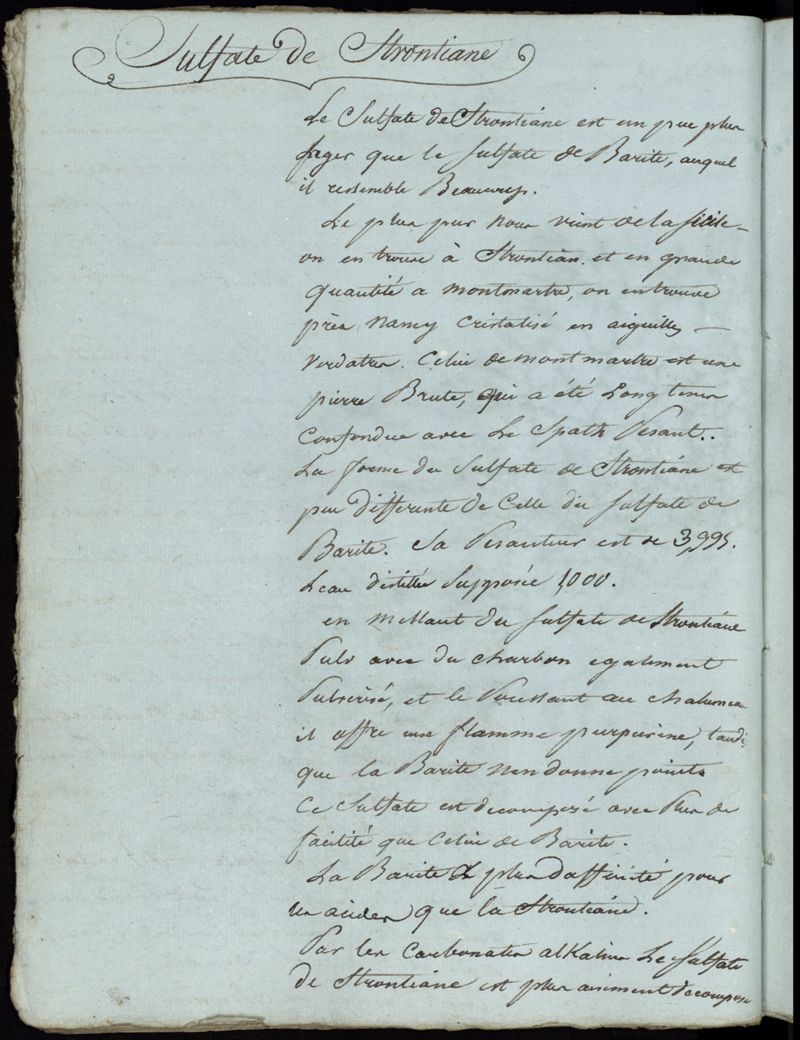 Sulfate de Strontiane
Le Sulfate de Strontiane est un peu plus
leger que le sulfate de Barite, auquel
il ressemble Beaucoup.
Le plus pur nous vient de la sicile
on en trouve à Strontian. et en grande
quantité a montmartre, on en trouve
près nancy cristalisé en aiguilles
verdatres. Celui de montmartre est une
pierre Brute, qui a été Longtems
Confondue avec Le Spath Pesant.
La forme du Sulfate de Strontiane est
peu differente de Celle du Sulfate de
Barite. Sa Pesanteur est de 3,995.
L'eau distillée supposée 1,000.
en mellant du Sulfate de Strontiane
Pulv avec du charbon egalement
Pulverisé, et le Poussant au chalumeau
il offre une flamme purpurine, tandis
que la Barite n'en donne point.
Ce Sulfate est decomposé avec Plus de
facilité que Celui de Barite.
La Barite a plus d'affinité pour
les acides que la Strontiane.
Par les Carbonates alKalins Le Sulfate
de Strontiane est plus aisement decomposé